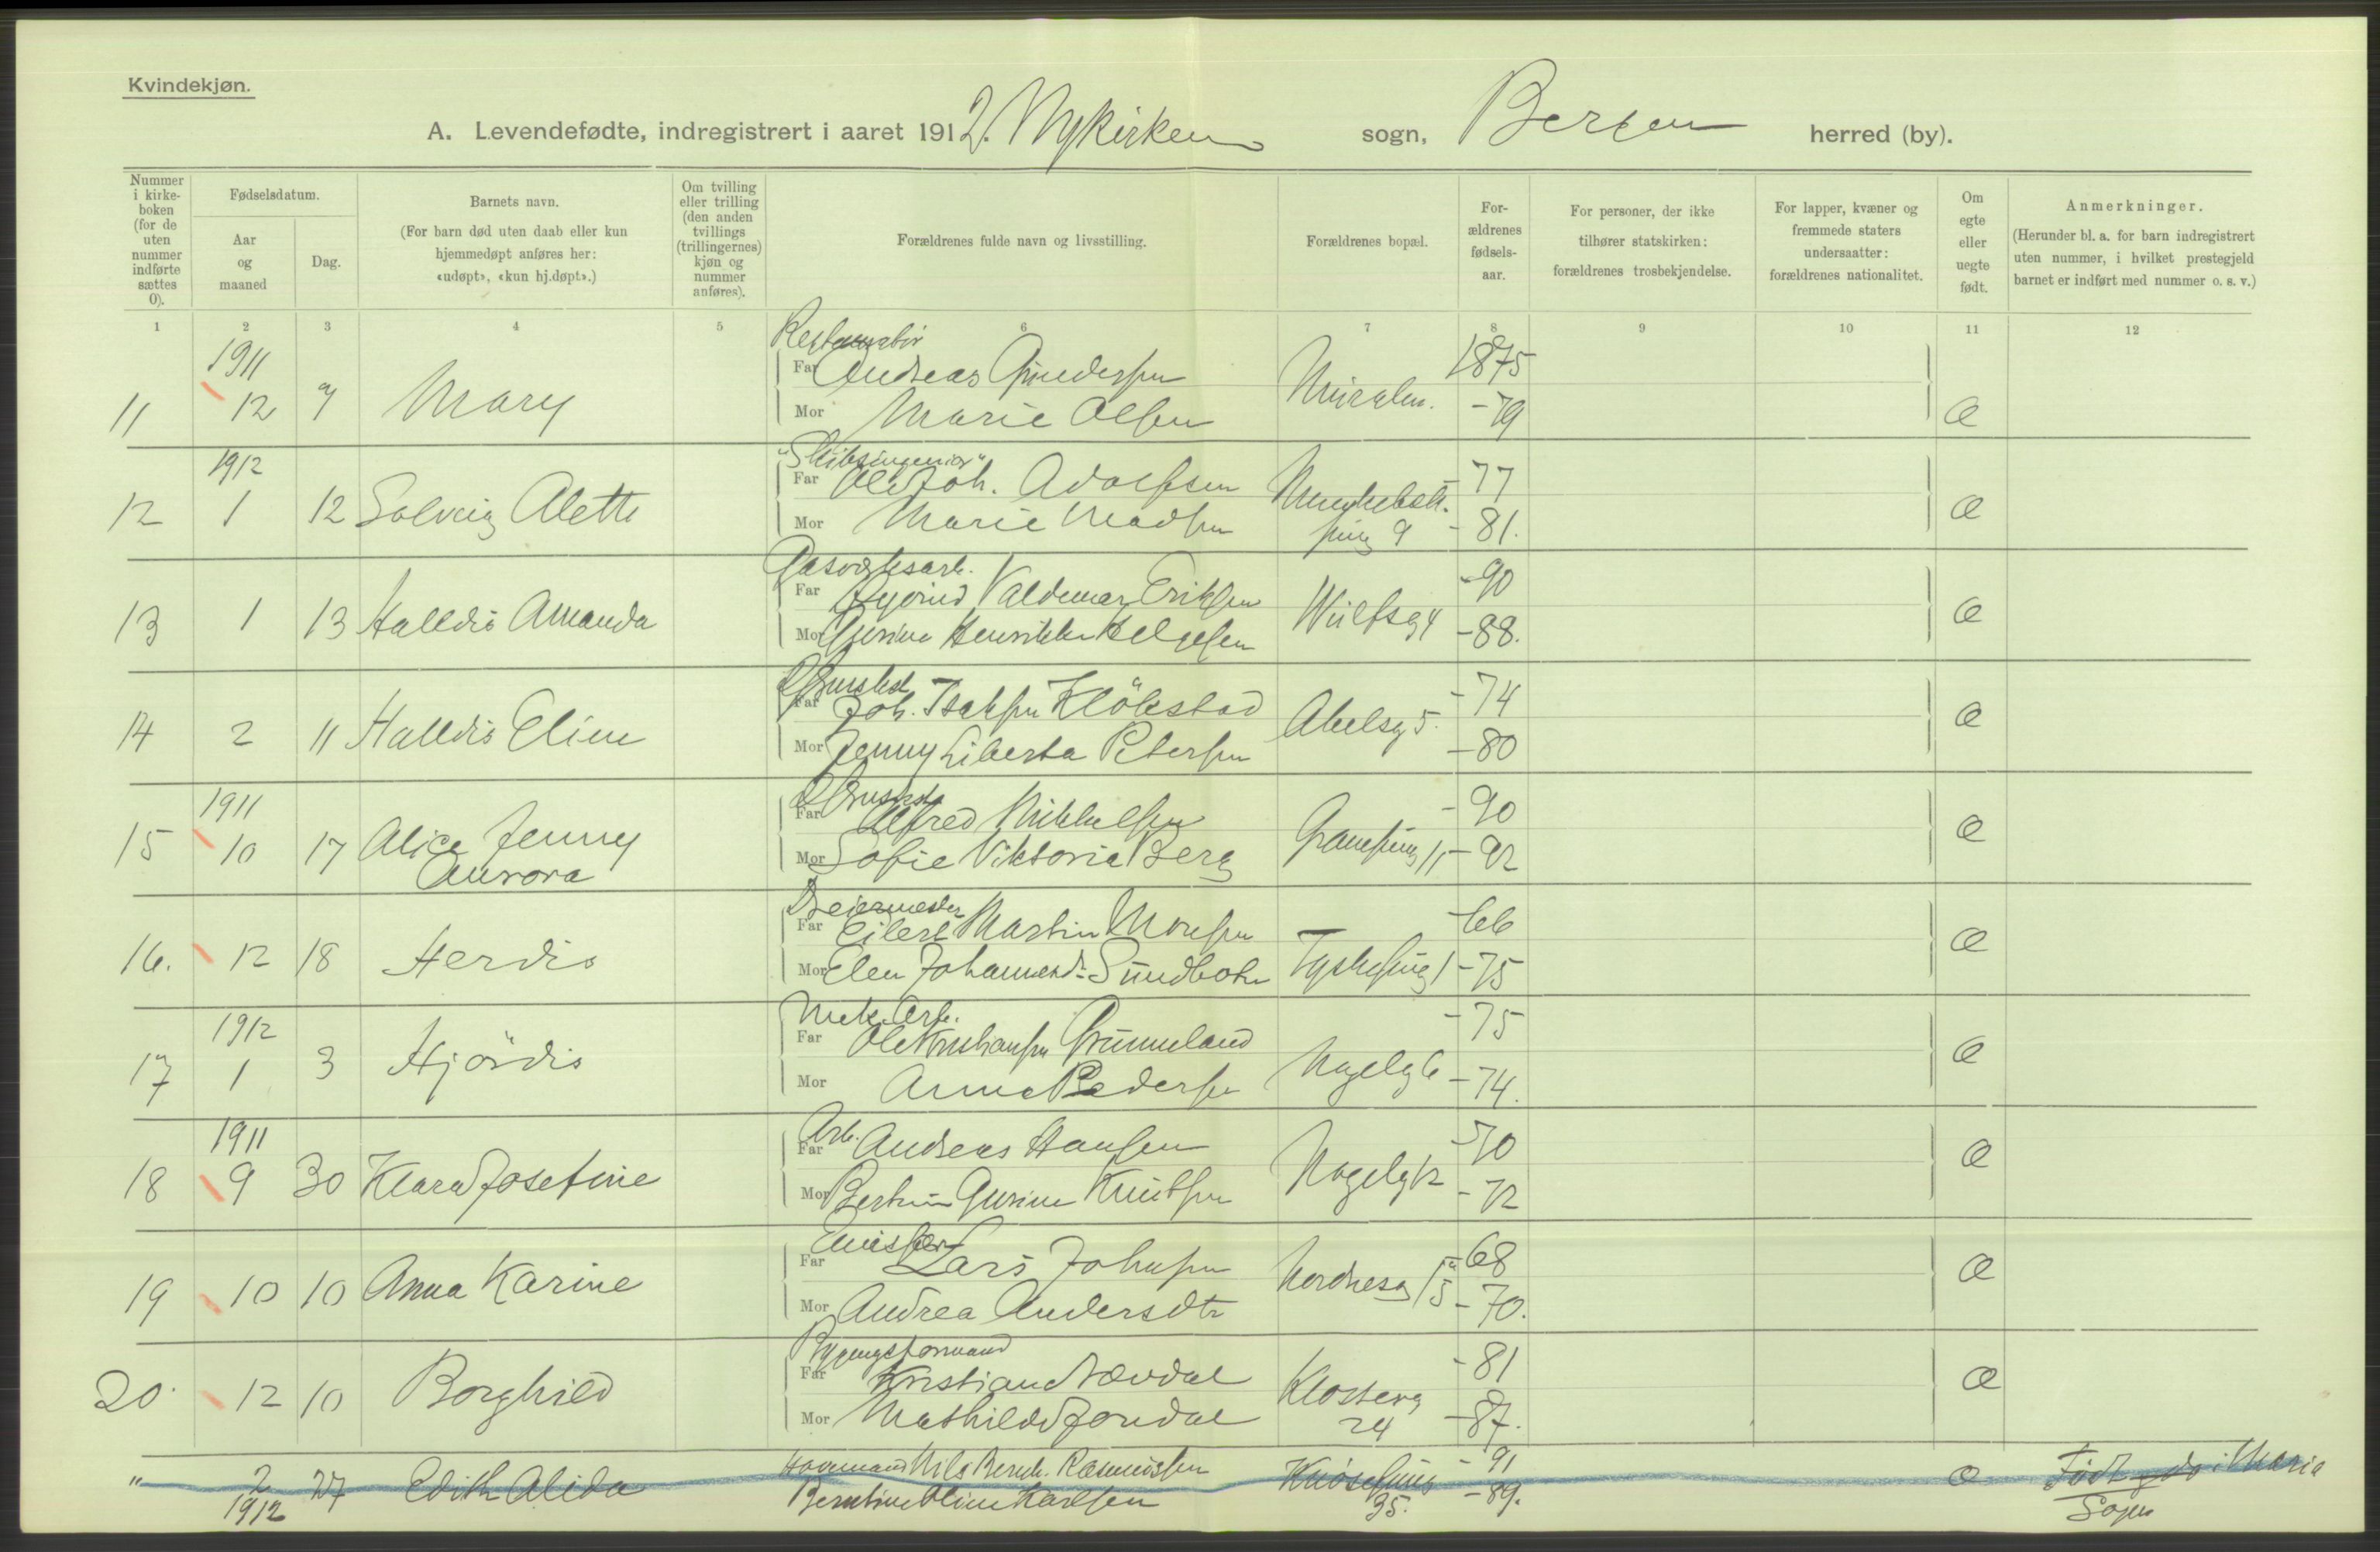 Kvindekjøn.
A. Levendefødte, indregistrert i aaret 1912. Nykirken sogn, Bergen herred (by).
Nummer i kirke-boken (for de uten nummer indførte sættes 0).
Fødselsdatum.
Aar og maaned
Dag.
Barnets navn.
(For barn død uten daab eller kun hjemmedøpt anføres her: «udøpt», «kun hj.døpt».)
Om tvilling eller trilling (den anden tvillings (trillingernes) kjøn og nummer anføres).
Forældrenes fulde navn og livsstilling.
Forældrenes bopæl.
For-ældrenes fødsels-aar.
For personer, der ikke tilhører statskirken: forældrenes trosbekjendelse.
For lapper, kvæner og fremmede staters undersaatter: forældrenes nationalitet.
Om egte eller uegte født.
Anmerkninger.
(Herunder bl. a. for barn indregistrert uten nummer, i hvilket prestegjeld barnet er indført med nummer o. s. v.)
1 2 3 4 5 6 7 8 9 10 11 12
1911
11 12 7 Mary
Far Andreas Gundersen 1875
Mor Marie Olsen -79 Æ
1912
12 1 12 Solveig Alette
"Skibsingeniør"
Far Ole Joh. Adolfsen 77
Mor Marie Madsen 9 -81. Æ
13 1 13 Halldis Amanda
Gasverksarb.
Far Øyvind Valdemar Eriksen -90
Mor Gurine Henrikke Helgesen -88. Æ
14 2 11 Halldis Eline
Far Joh. Isaksen Klökstad -74
Mor Jenny Liberta Petersen Abelsg 5. -80 Æ
1911
15 10 17 Alice Jenny Aurora
Far Alfred Mikkelsen -90
Mor Sofie Viktoria Berg 11 -92 Æ
16. 12 18 Herdis
Dreiermester
Far Eilert Martin Monsen -66
Mor Elen Johannesdr. Sundbotn 1 -75 Æ
1912
17 1 3 Hjördis
Mek. Arb.
Far Ole -75
Mor Anna Pedersen Nagelg 6 -74. Æ
1911
18 9 30 Klara Josefine
Arb.
Far Andreas Hansen -70
Mor Gurine Knutsen Nagelg 12 -72 Æ
19 10 10 Anna Karine
Emissær
Far Lars Johnsen 68
Mor Andrea Andersdtr Nordnesg -70. Æ
20. 12 10 Borghild
Bygningsformand
Far Kristian Nævdal -81
Mor Mathilde Jondal Klosterg 24 -87. Æ
" 2 27 Edith Alida
1912
Havnemand Nils Bernh. Rasmussen -91
Berntine Oline Karlsen 35. -89. Æ
Født i Maria Sogn